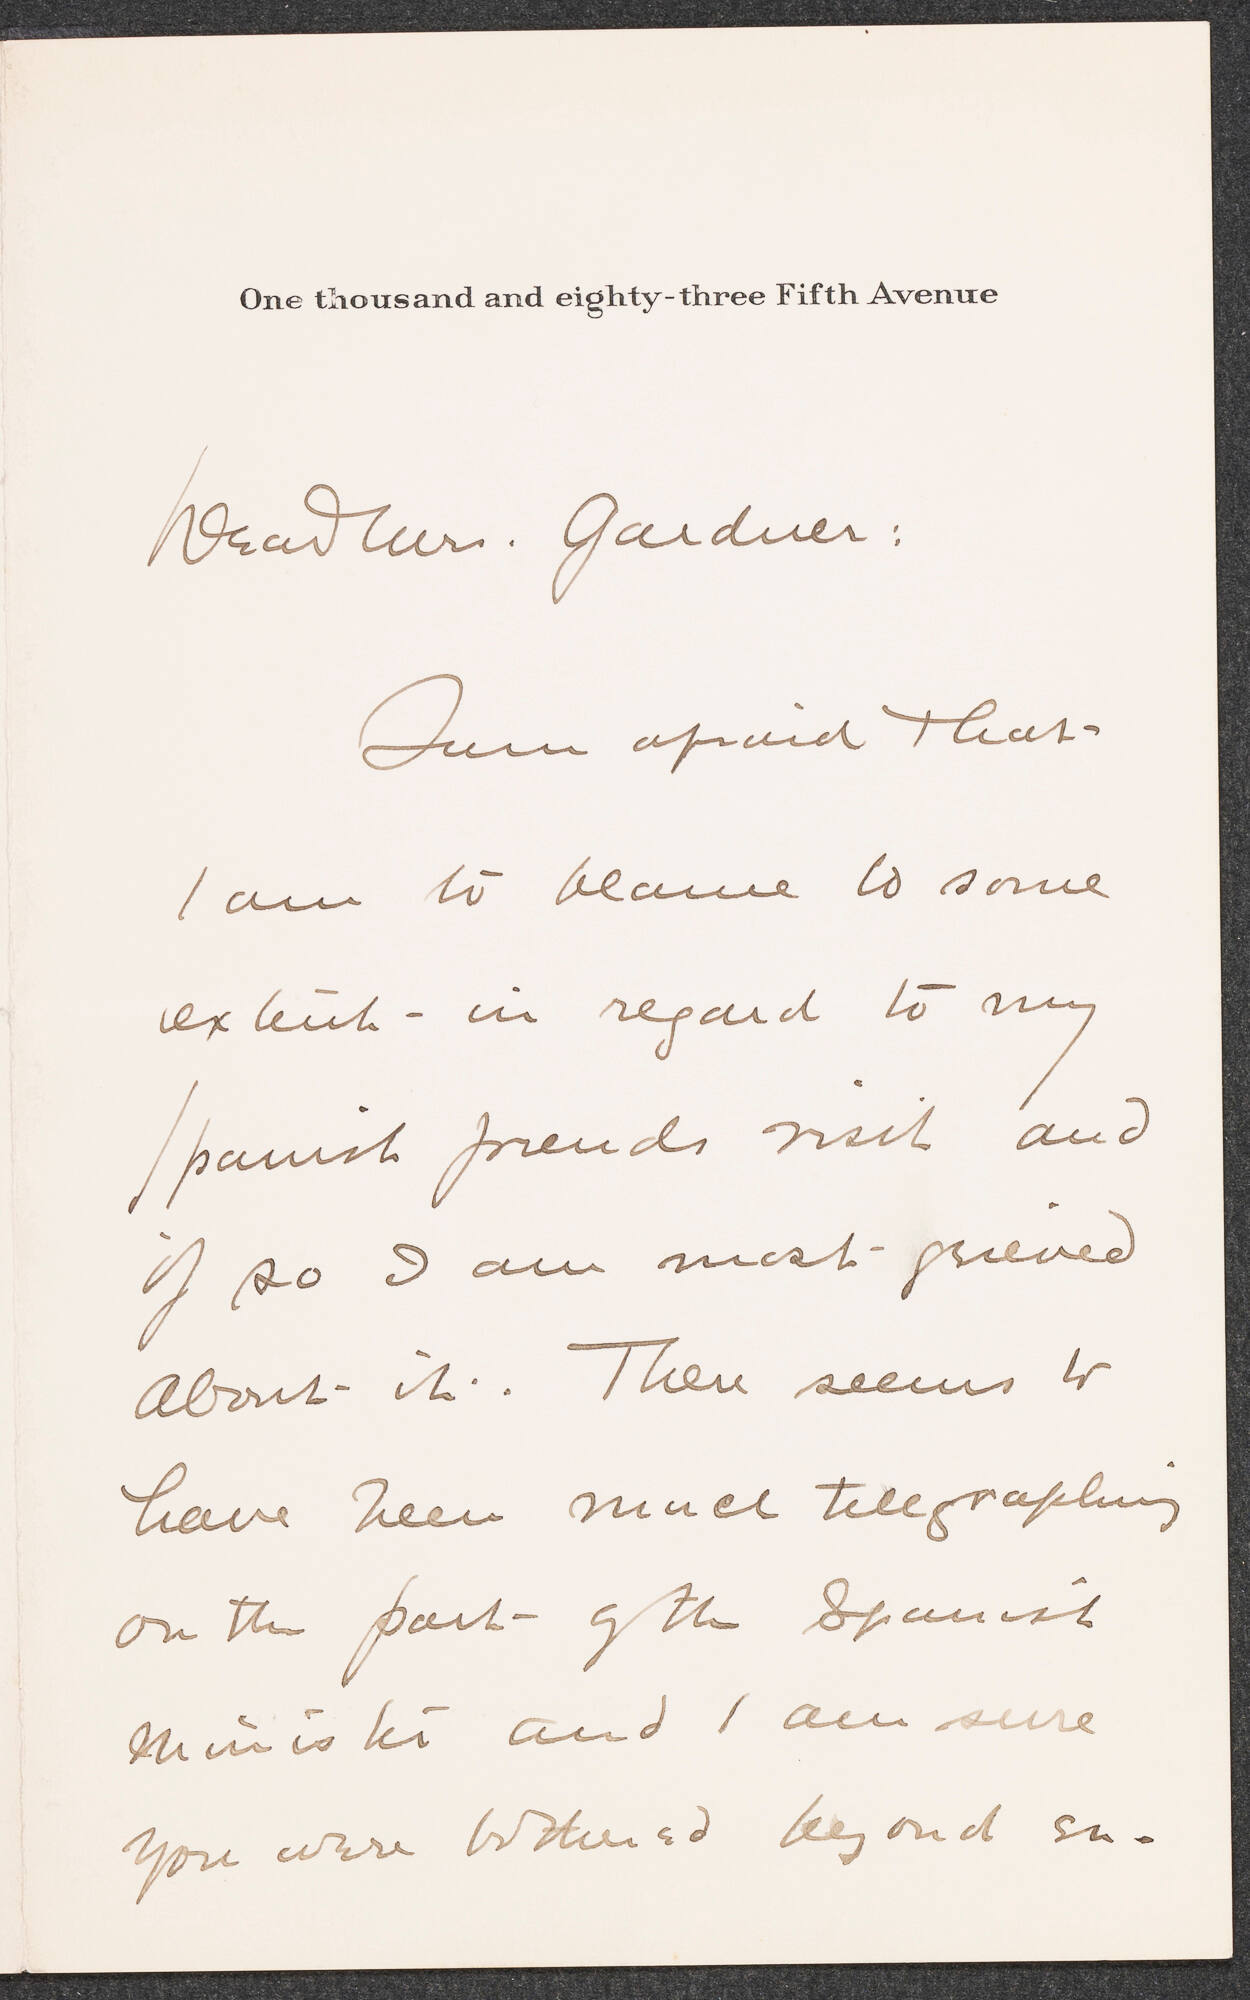 One thousand and eighty-three Fifth Avenue
Dear Mrs. Gardner:
I am afraid that
I am to blame to some
extent in regard to my
Spanish friends visit and
if so I am most grieved
about it. There seems to
have been much telegraphing
on the part of the Spanish
minister and I am sure
you were bothered beyond en-